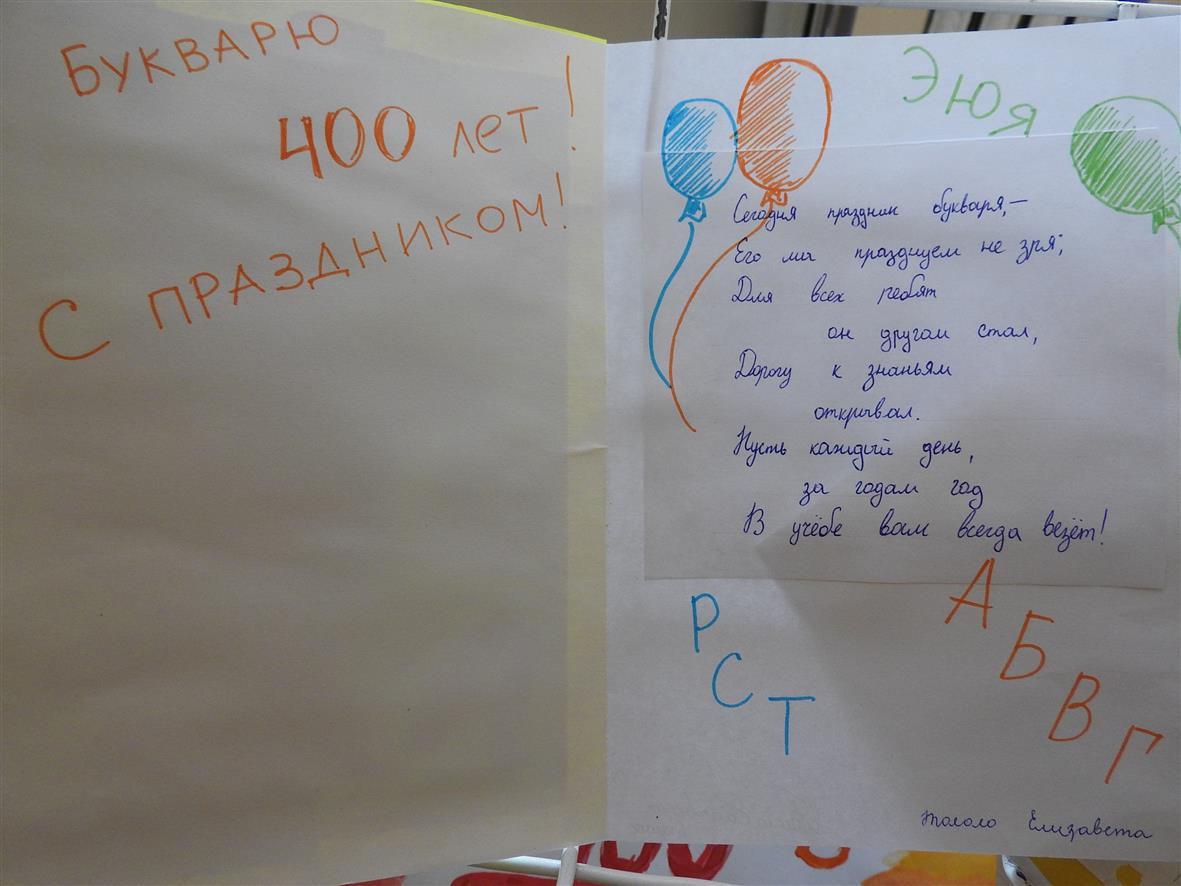 БУКВАРЮ
400 ЛЕТ!
С ПРАЗДНИКОМ!
ЭЮЯ
Сегодня праздник букваря,–
Его мы празднуем не зря;
Для всех ребят
он другом стал,
Дорогу к знаньям
открывал.
Пусть каждый день,
за годам год
В учёбе вам всегда везёт!
А
Б
В
Г
Р
С
Т
Елизавета